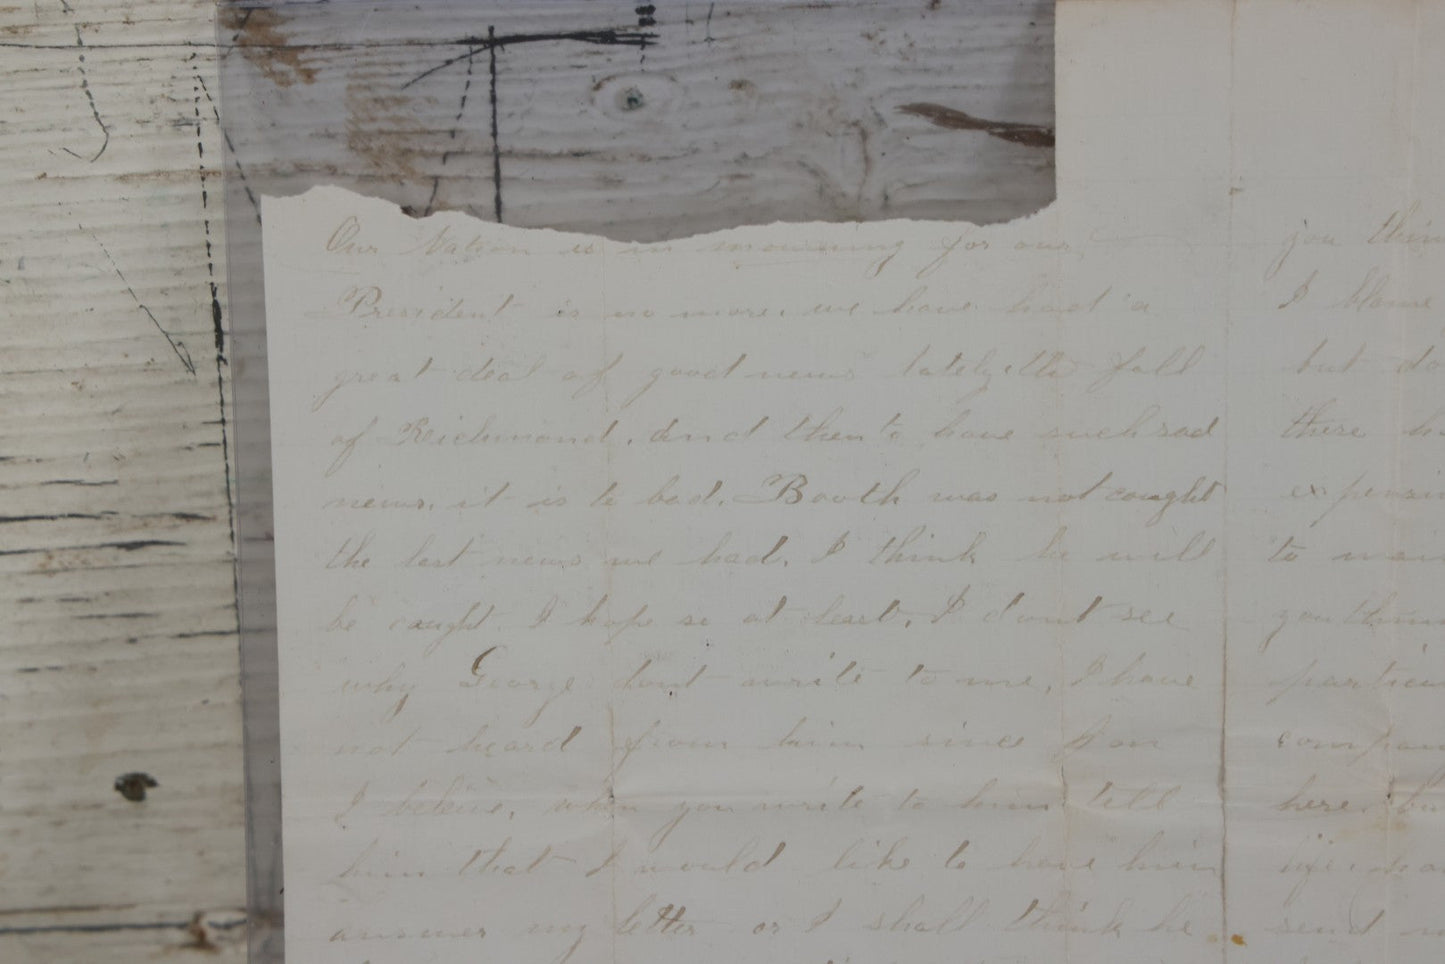 Our Nation is in mourning for our
President is no more. we have had a
great deal of good news lately, the fall
of Reichmond. And then to have such sad
news. it is to bad. Booth was not caught
the last news we had. I think he will
be caught. I hope so at least. I dont see
why George dont write to me. I have
not heard from him since Jan
I believe. when you write to him tell
him that I would like to have him
answer my letter or I shall think he
you thin
I blame
but do
there h
expensi
to mai
you thin
particu
company
here. bu
life. ma
send m